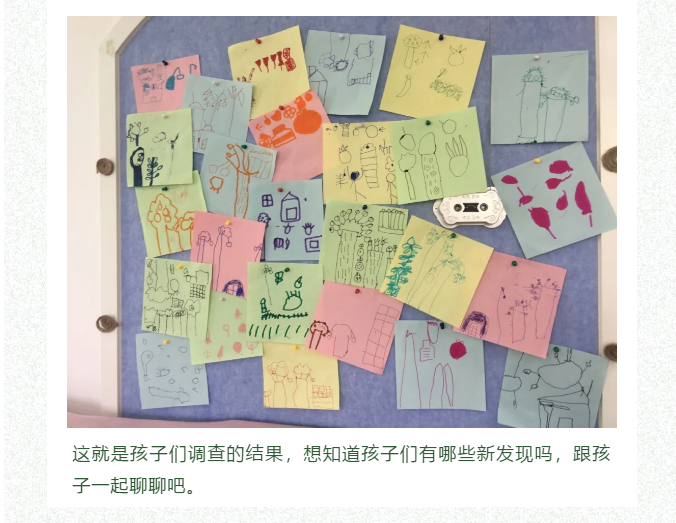 这就是孩子们调查的结果，想知道孩子们有哪些新发现吗，跟孩
子一起聊聊吧。